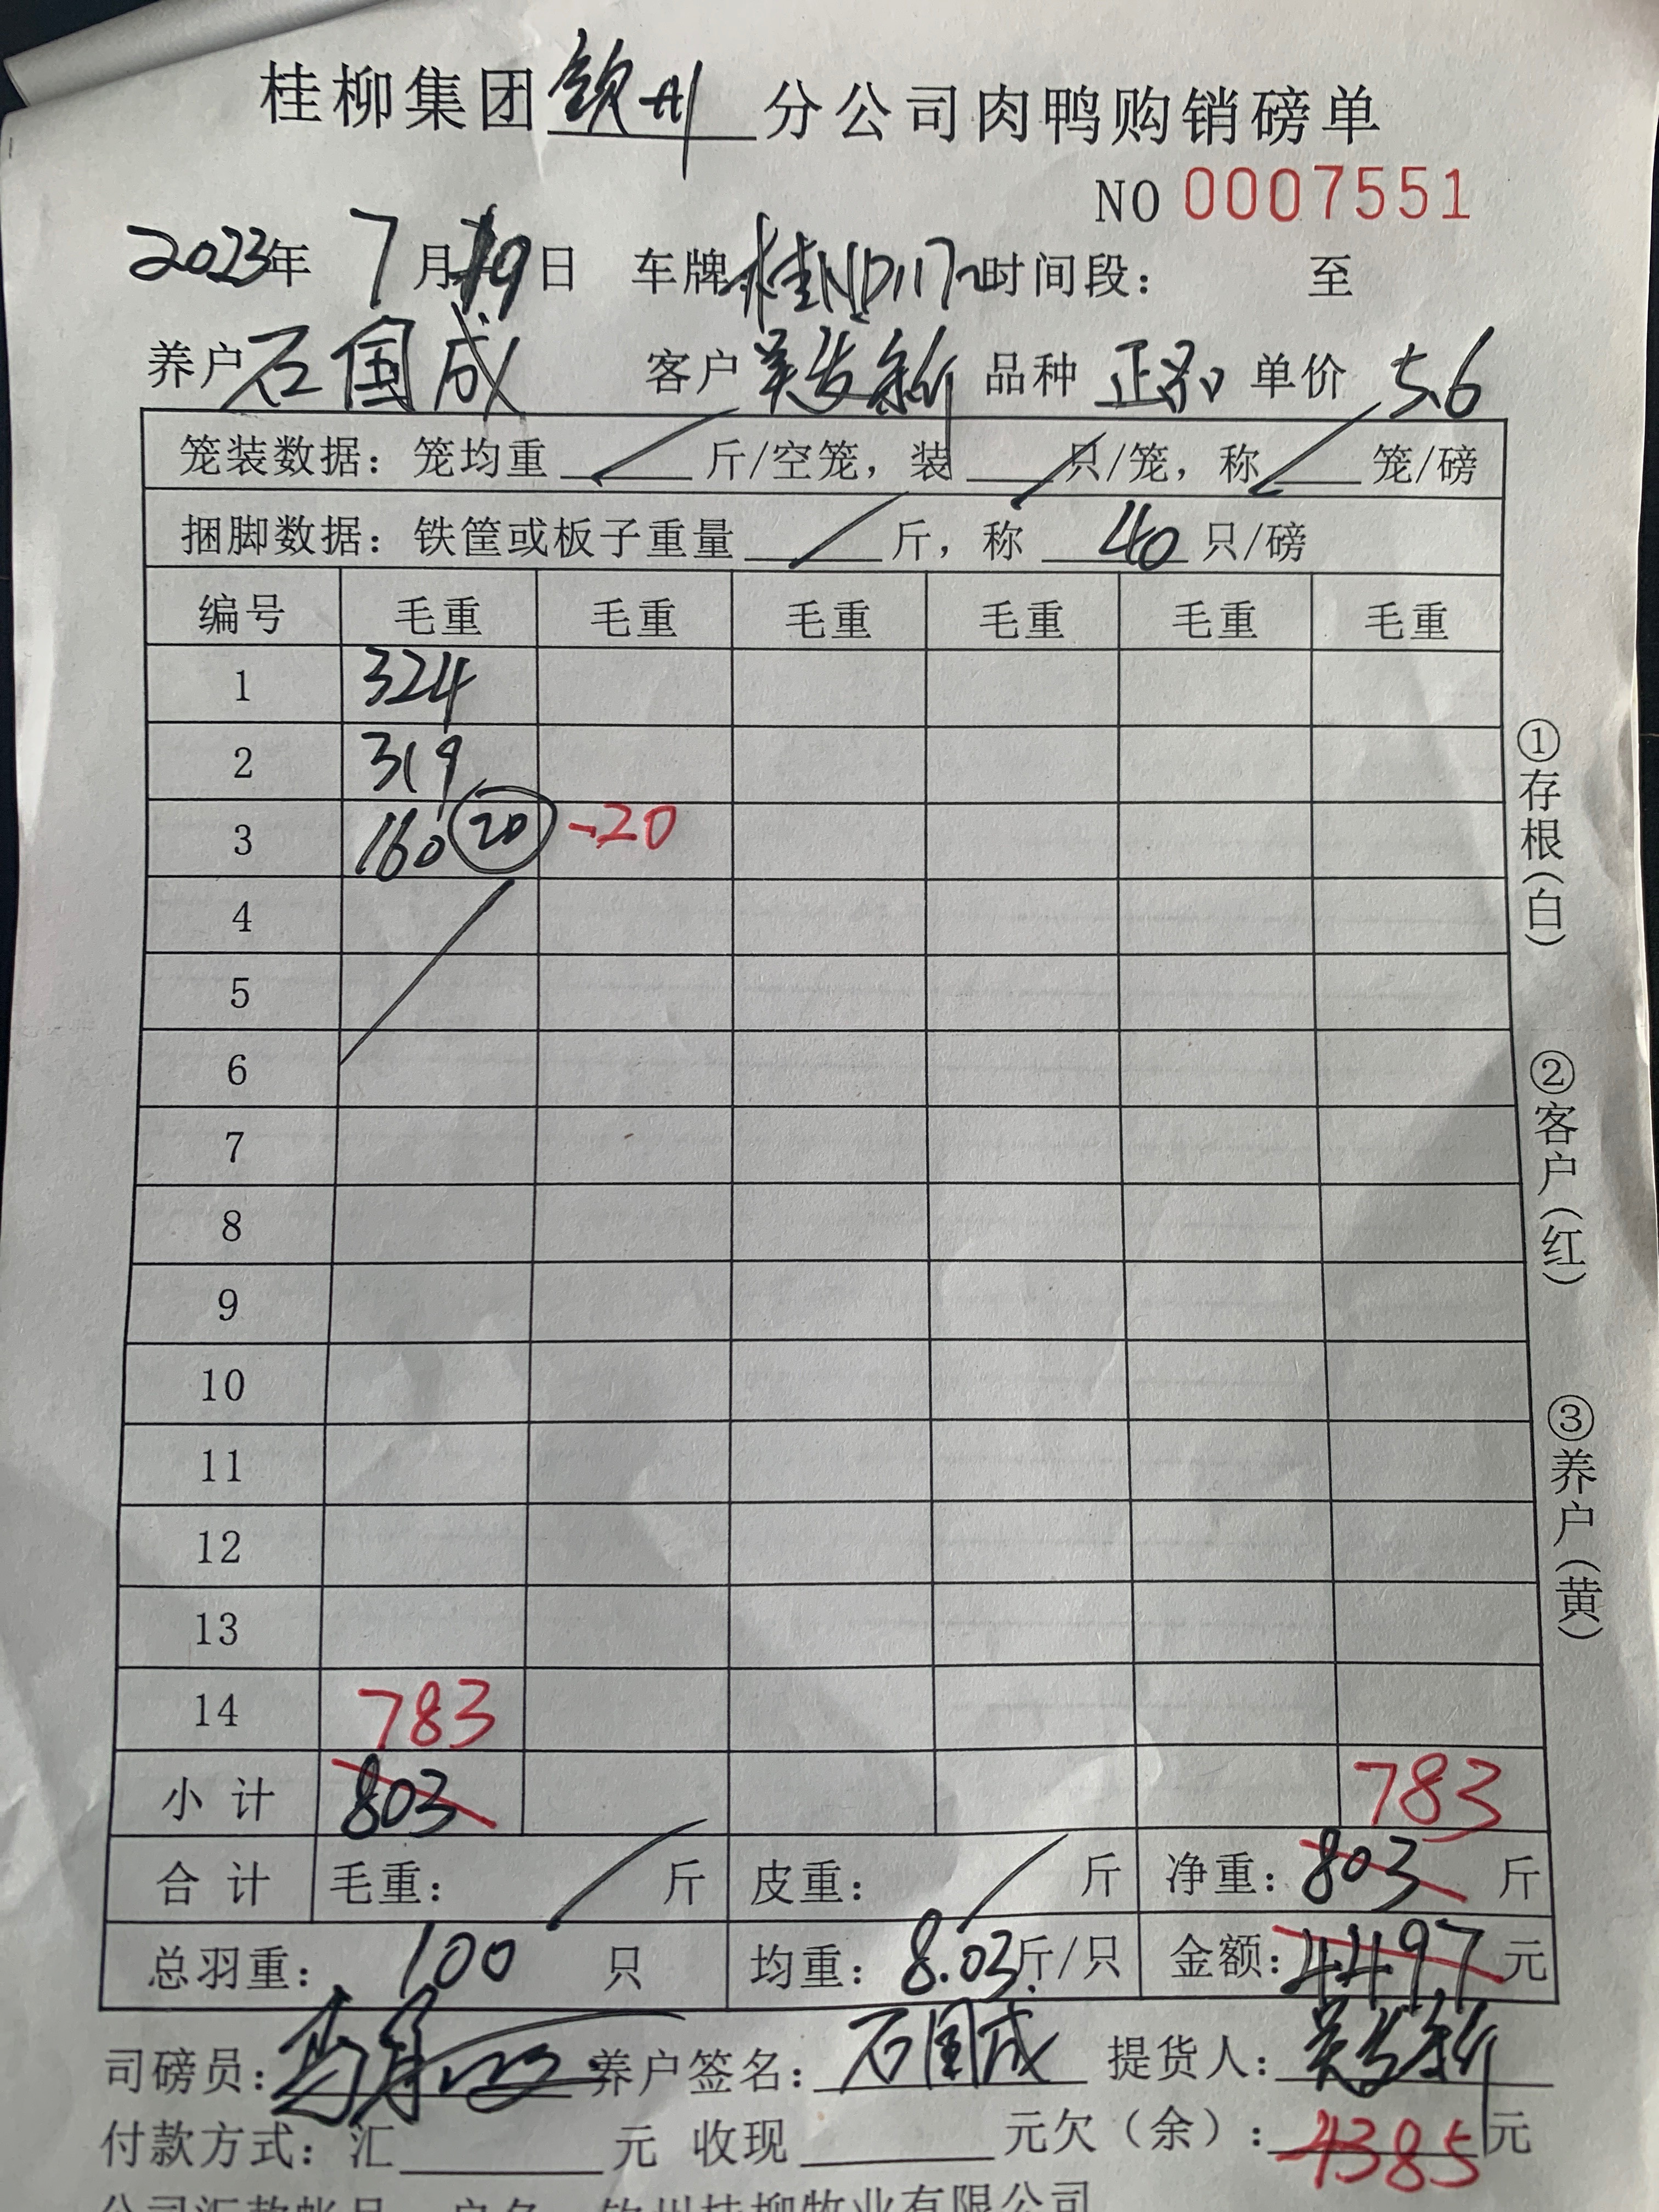 桂柳集团钦州分公司肉鸭购销磅单
NO 0007551
2023年 7月19日 车牌桂ND1172时间段: 至
养户石国成 客户 品种 正品 单价 5.6
笼装数据: 笼均重 / 斤/空笼, 装 / 只/笼, 称 / 笼/磅
捆脚数据: 铁筐或板子重量 / 斤, 称 40 只/磅
编号 毛重 毛重 毛重 毛重 毛重 毛重
1 324
2 319
3 160 20 -20
4
5
6
7
8
9
10
11
12
13
14 783
小计 803 783
合计 毛重: / 斤 皮重: / 斤 净重: 803 斤
总羽重: 100 只 均重: 8.03斤/只 金额: 4497 元
司磅员: 养户签名: 石国成 提货人:
付款方式: 汇 元 收现 元欠(余): 4385元
公司汇款帐号 户名 钦州桂柳牧业有限公司
①存根(白)
②客户(红)
③养户(黄)